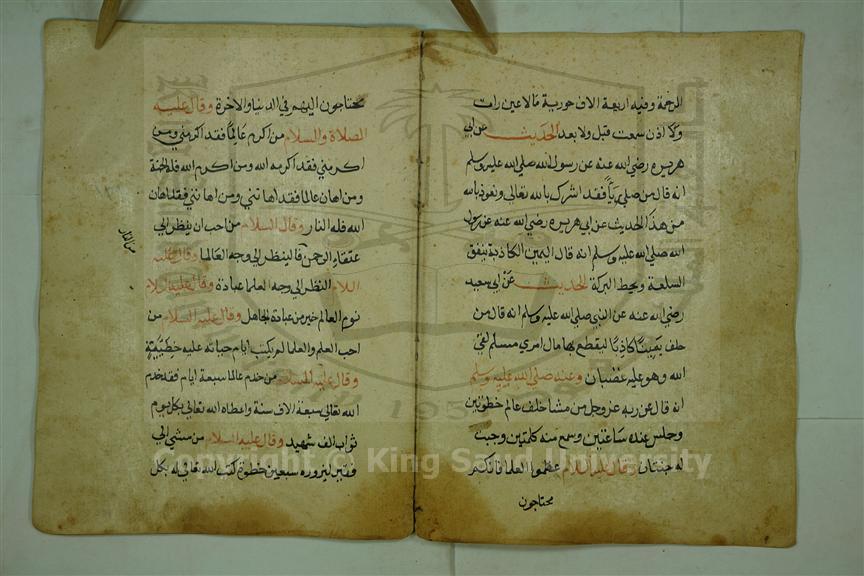 الرحمة وفيه اربعة الاف حورية مالا عين رات
ولا اذن سمعت قبل ولا بعد الحديث عن ابي
هريره رضي الله عنه عن رسول الله صلي الله عليه وسلم
انه قال من صلي رياً فقد اشرك بالله تعالي ونعوذ بالله
من هذ الحديث عن ابي هريره رضي الله عنه عن رسول
الله صلي الله عليه وسلم انه قال اليمين الكاذبة ينفق
السلعة ويحط البركة الحديث عن ابي سعيد
رضي الله عنه عن النبي صلي الله عليه وسلم انه قال من
حلف يميناً كاذباً ليقطع بها مال امري مسلم لقي
الله وهو عليه غضبان وعنه صلي الله عليه وسلم
انه قال عن ربه عز وجل من مشا خلف عالم خطوتين
وجلس عنده ساعتين وسمع منه كلمتين وجبت
له جنتان وقال عليه السلام عظموا العلما فانكم
محتاجون
محتاجون اليهم في الدنيا والاخرة وقال عليه
الصلاة والسلام من اكرم عالماً فقد اكرمني ومن
اكرمني فقد اكرمه الله ومن اكرم الله فله الجنة
ومن اهان عالما فقد اهانني ومن اهانني فقد اهان
الله فله النار وقال السلام من احب ان ينظر الي
عتقاء الرحمن فالينظر الي وجه العالما وقال عليه
السلام النظر الي وجه العلما عبادة وقال عليه السلام
نوم العالم خير من عبادة الجاهل وقال عليه السلام من
احب العلم والعلما لم يكتب ايام حياته عليه خطيئة
وقال عليه السلام من خدم عالما سبعة ايام فقد خدم
الله تعالي سبعة الاف سنة واعطاه الله تعالي بكل يوم
ثواب الف شهيد وقال عليه السلام من مشي الي
فقير ليزوره سبعين خطوة كتب الله تعالي له بكل
من النار
Copyright © King Saud University